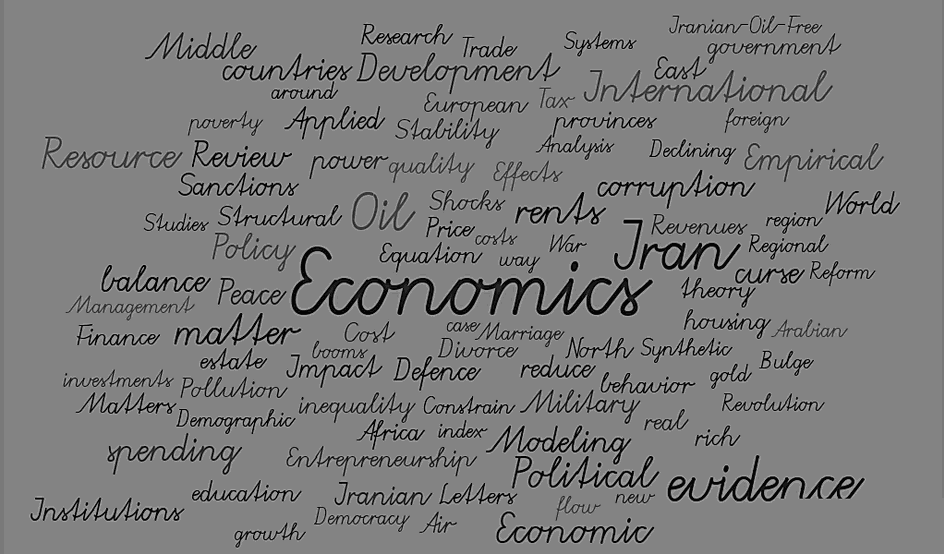 Iranian-Oil-Free
Middle Research Trade Systems government
countries Development East
around European Tax International
poverty Applied Stability provinces foreign
Resource Review power quality Effects Analysis Declining Empirical
Sanctions corruption
Studies Structural Oil Shocks rents Revenues region World
Policy Price costs War Iran Regional
Equation way
balance Peace Economics theory curse Reform
Management
Finance matter Cost case Marriage housing Arabian
estate booms Divorce North Synthetic
investments Pollution Impact Defence reduce behavior gold Bulge
Matters Demographic inequality Constrain Military real Revolution
Africa index Modeling rich
spending Entrepreneurship Political evidence
Institutions education Iranian Letters flow new
growth Democracy Air Economic